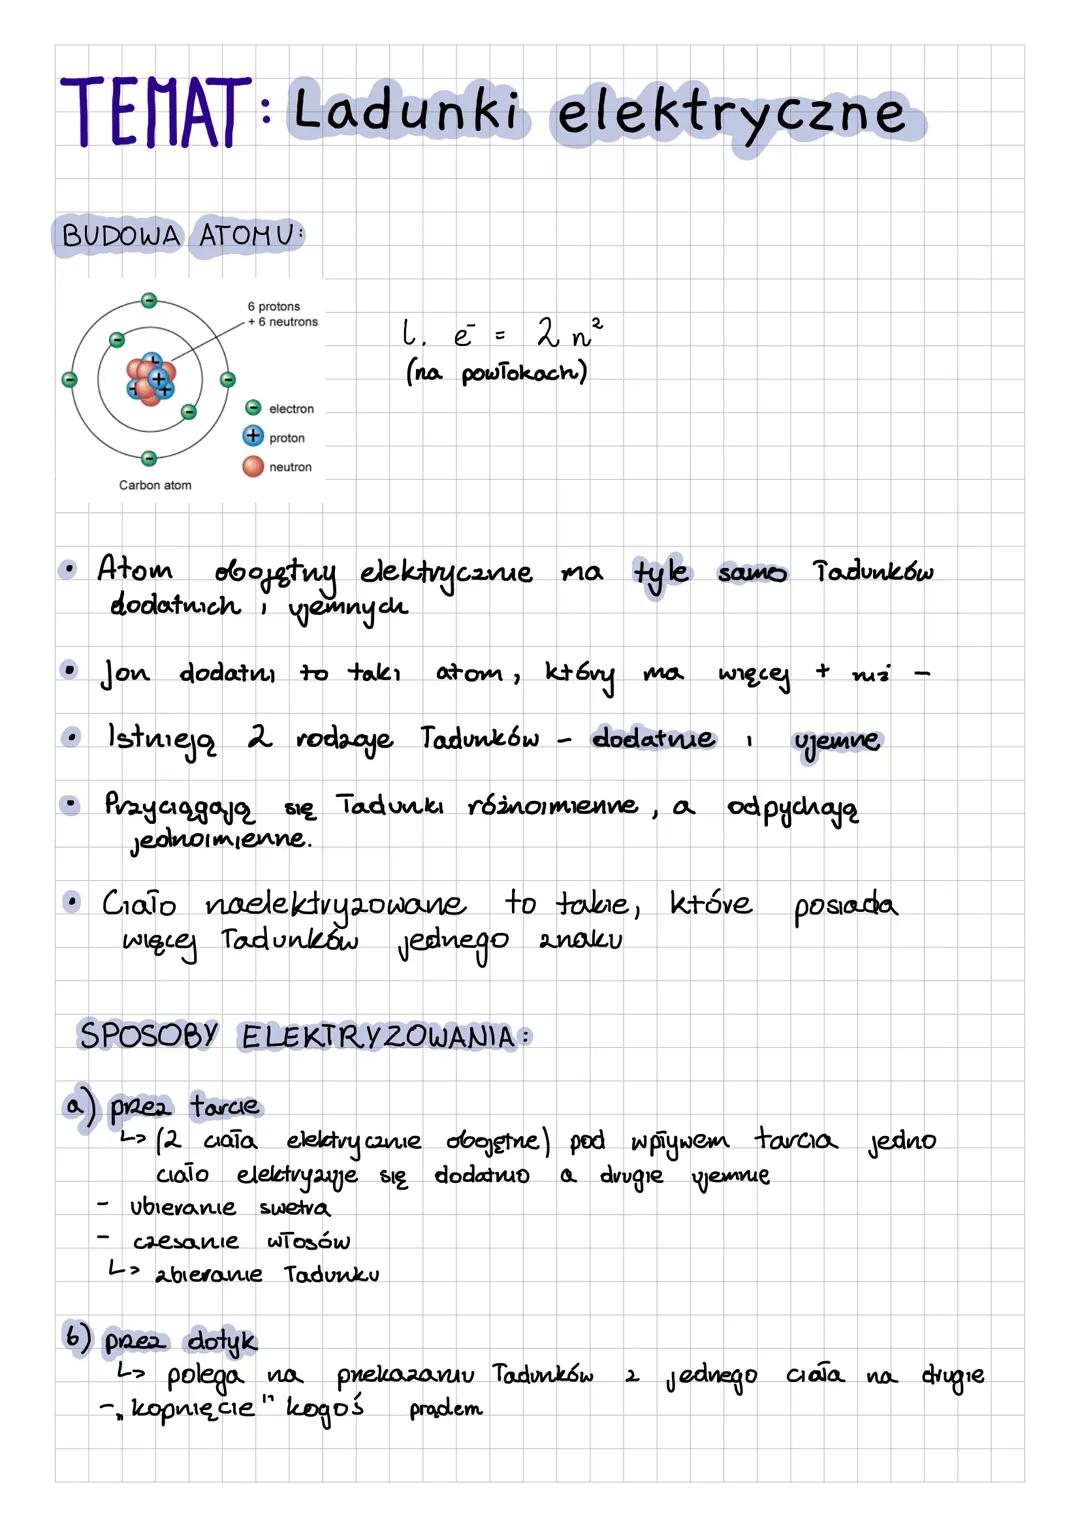 TEMAT: Ladunki elektryczne
BUDOWA ATOMU:
6 protons
+ 6 neutrons
electron
proton
neutron
Carbon atom
l. e⁻ = 2 n²
(na powłokach)
• Atom obojętny elektrycznie ma tyle samo ładunków
dodatnich i ujemnych
• Jon dodatni to taki atom, który ma więcej + niż -
• Istnieją 2 rodzaje ładunków - dodatnie i ujemne
• Przyciągają się ładunki różnoimienne, a odpychają
jednoimienne.
• Ciało naelektryzowane to takie, które posiada
więcej ładunków jednego znaku
SPOSOBY ELEKTRYZOWANIA:
a) przez tarcie
↳ (2 ciała elektrycznie obojętne) pod wpływem tarcia jedno
ciało elektryzuje się dodatnio a drugie ujemnie
- ubieranie swetra
- czesanie włosów
↳ zbieranie ładunku
b) przez dotyk
↳ polega na przekazaniu ładunków z jednego ciała na drugie
- „kopnięcie" kogoś prądem